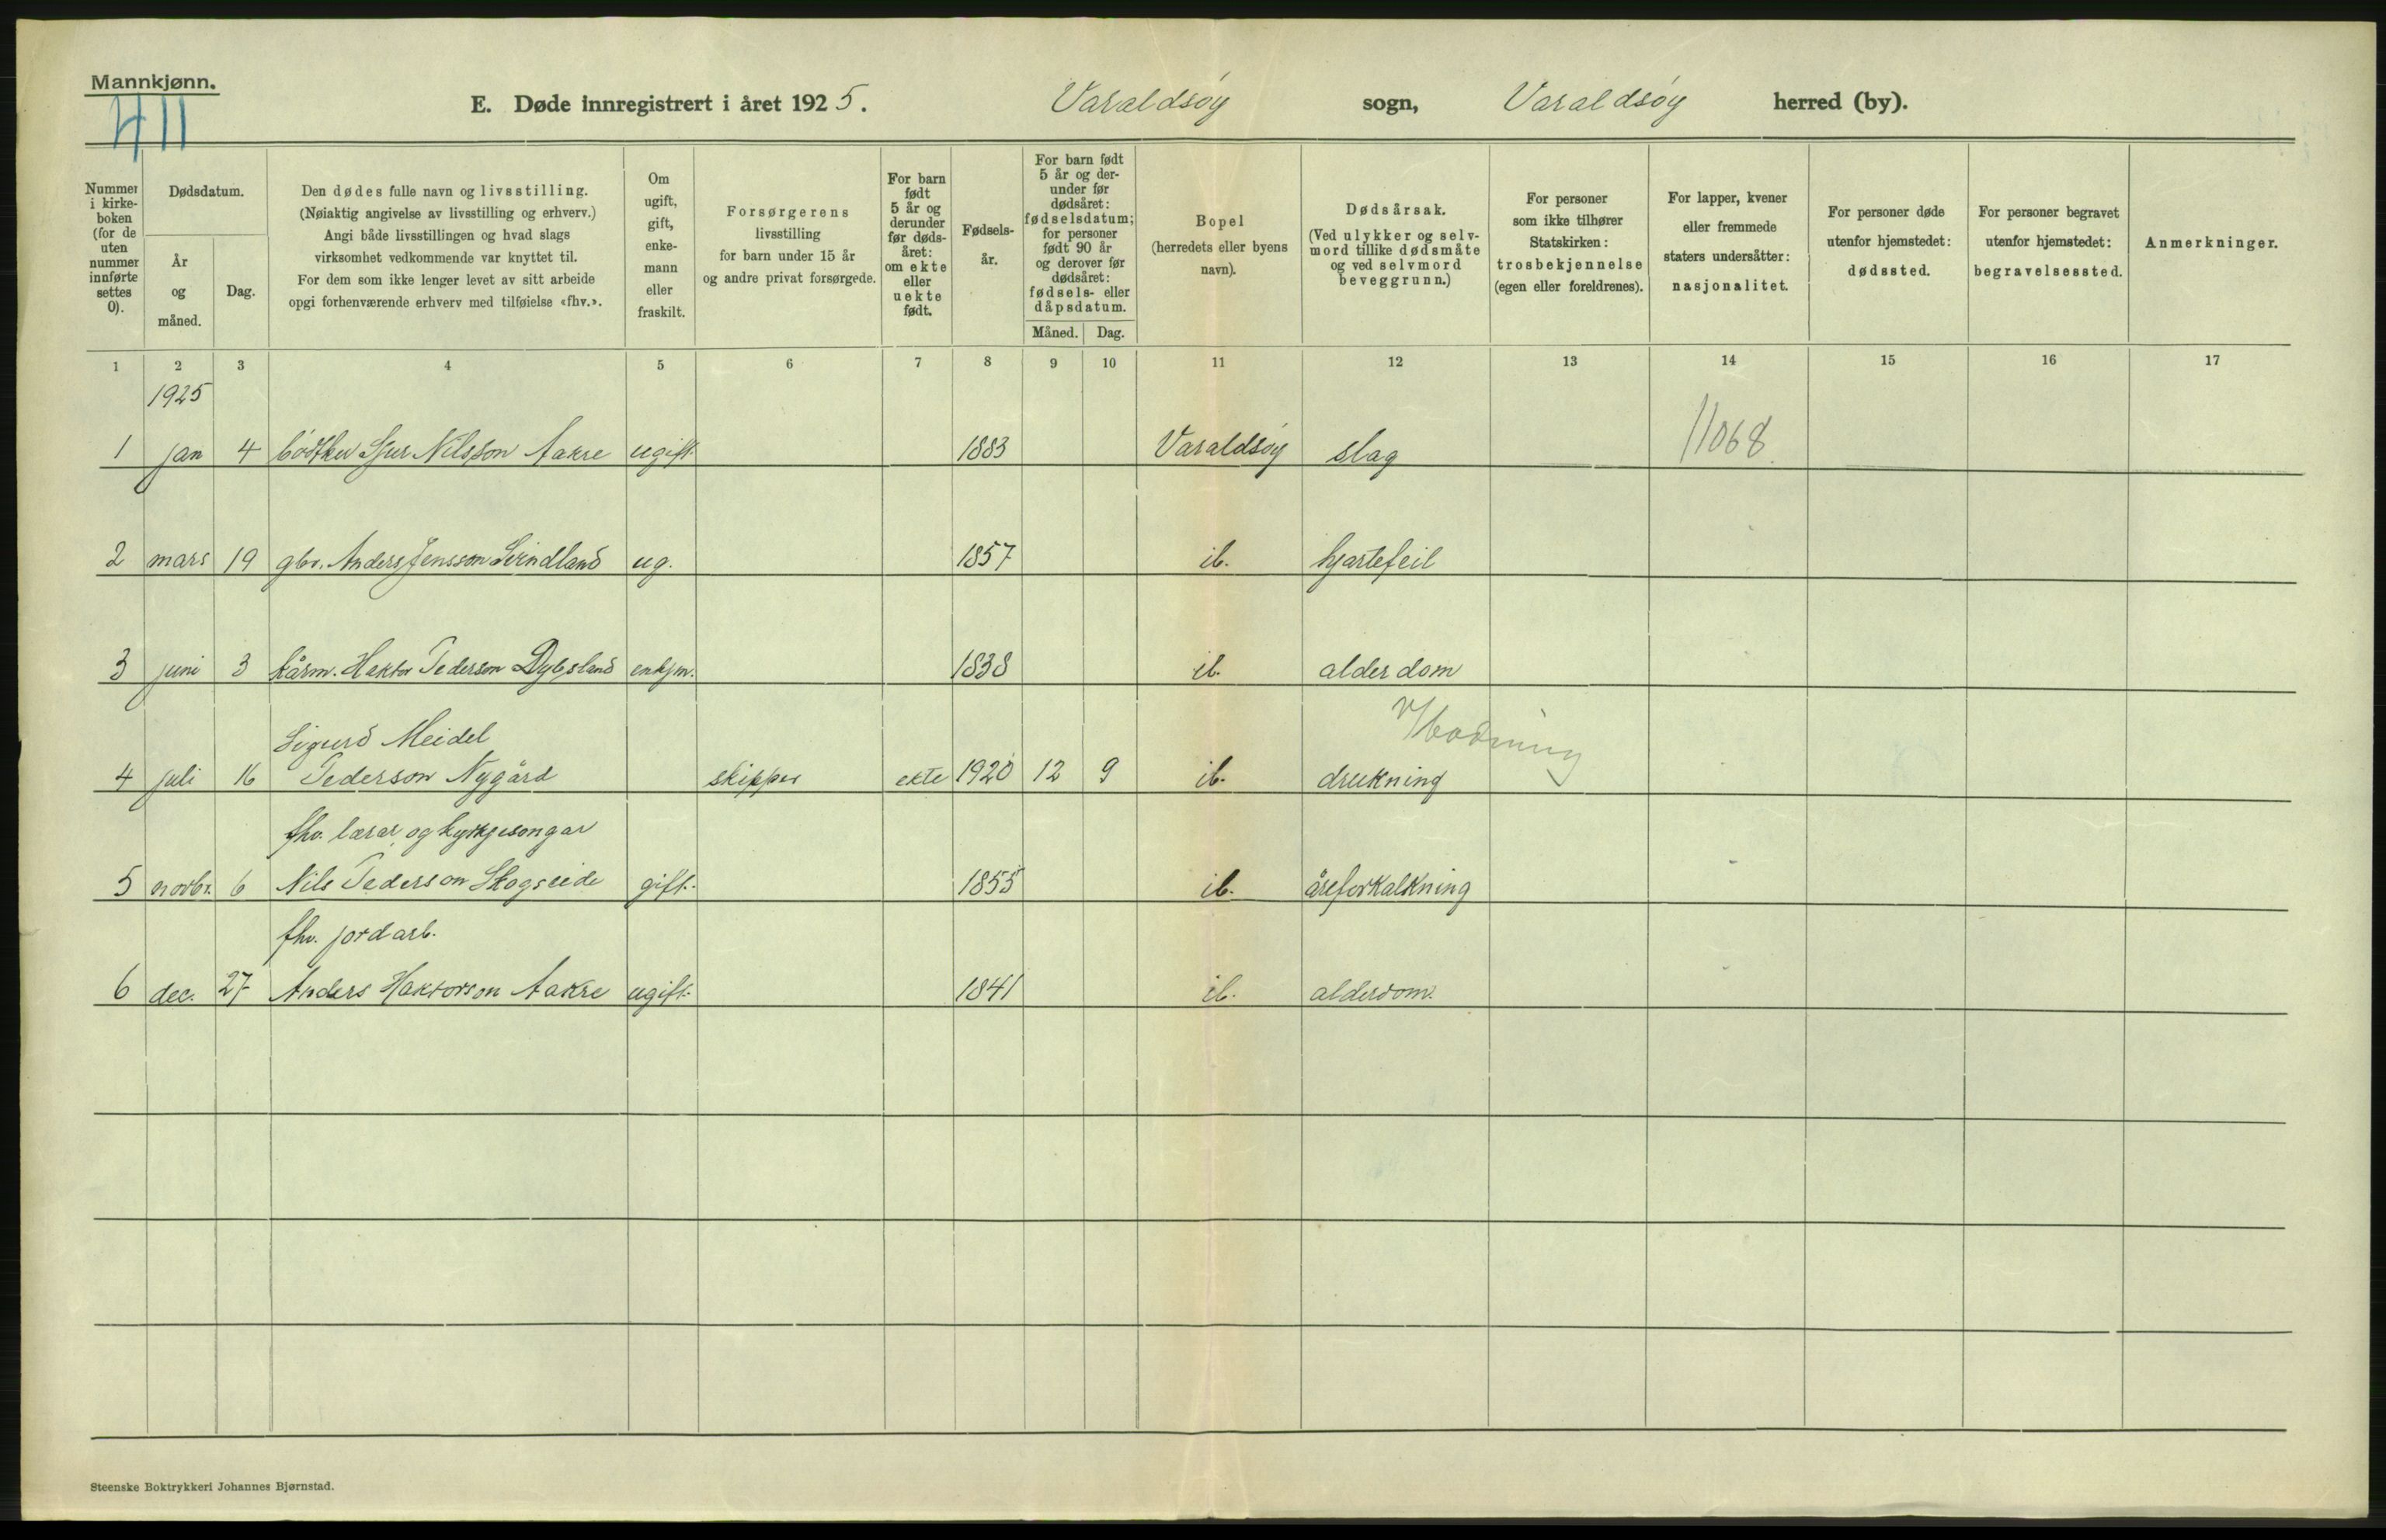 Mannkjønn.
411
E. Døde innregistrert i året 1925. Varaldsøy sogn, Varaldsøy herred (by).
Nummer i kirkeboken (for de uten nummer innførte settes 0).
Dødsdatum.
År og måned.
Dag.
Den dødes fulle navn og livsstilling.
(Nøiaktig angivelse av livsstilling og erhverv.)
Angi både livsstillingen og hvad slags
virksomhet vedkommende var knyttet til.
For dem som ikke lenger levet av sitt arbeide
opgi forhenværende erhverv med tilføielse «fhv.».
Om ugift, gift, enkemann eller fraskilt.
Forsørgerens
livsstilling
for barn under 15 år
og andre privat forsørgede.
For barn født 5 år og derunder før dødsåret: om ekte eller uekte født.
Fødselsår.
For barn født 5 år og derunder før dødsåret: fødselsdatum; for personer født 90 år og derover før dødsåret: fødsels- eller dåpsdatum.
Måned. Dag.
Bopel
(herredets eller byens
navn).
Dødsårsak.
(Ved ulykker og selvmord tillike dødsmåte og ved selvmord beveggrunn.)
For personer
som ikke tilhører
Statskirken:
trosbekjennelse
(egen eller foreldrenes).
For lapper, kvener
eller fremmede
staters undersåtter:
nasjonalitet.
For personer døde
utenfor hjemstedet:
dødssted.
For personer begravet
utenfor hjemstedet:
begravelsessted.
Anmerkninger.
1 2 3 4 5 6 7 8 9 10 11 12 13 14 15 16 17
1925
1 jan 4 bødker Sjur Nilsson Aakre ugift. 1883 Varaldsøy slag 11068
2 mars 19 gbr. Anders Jensson ug. 1857 ib. hjartefeil
3 juni 3 kårm. Haktor Pederson enkjm. 1838 ib. alderdom
Sigurd Meidel
4 juli 16 Pederson Nygård skipper ekte 1920 12 9 ib. drukning
fhv. lærar og kyrkjesongar
5 novbr. 6 Nils Pederson Skogseide gift. 1855 ib. åreforkalkning
fhv. jordarb.
6 dec. 27 Anders Haktorson Aakre ugift. 1841 ib. alderdom.
Steenske Boktrykkeri Johannes Bjørnstad.